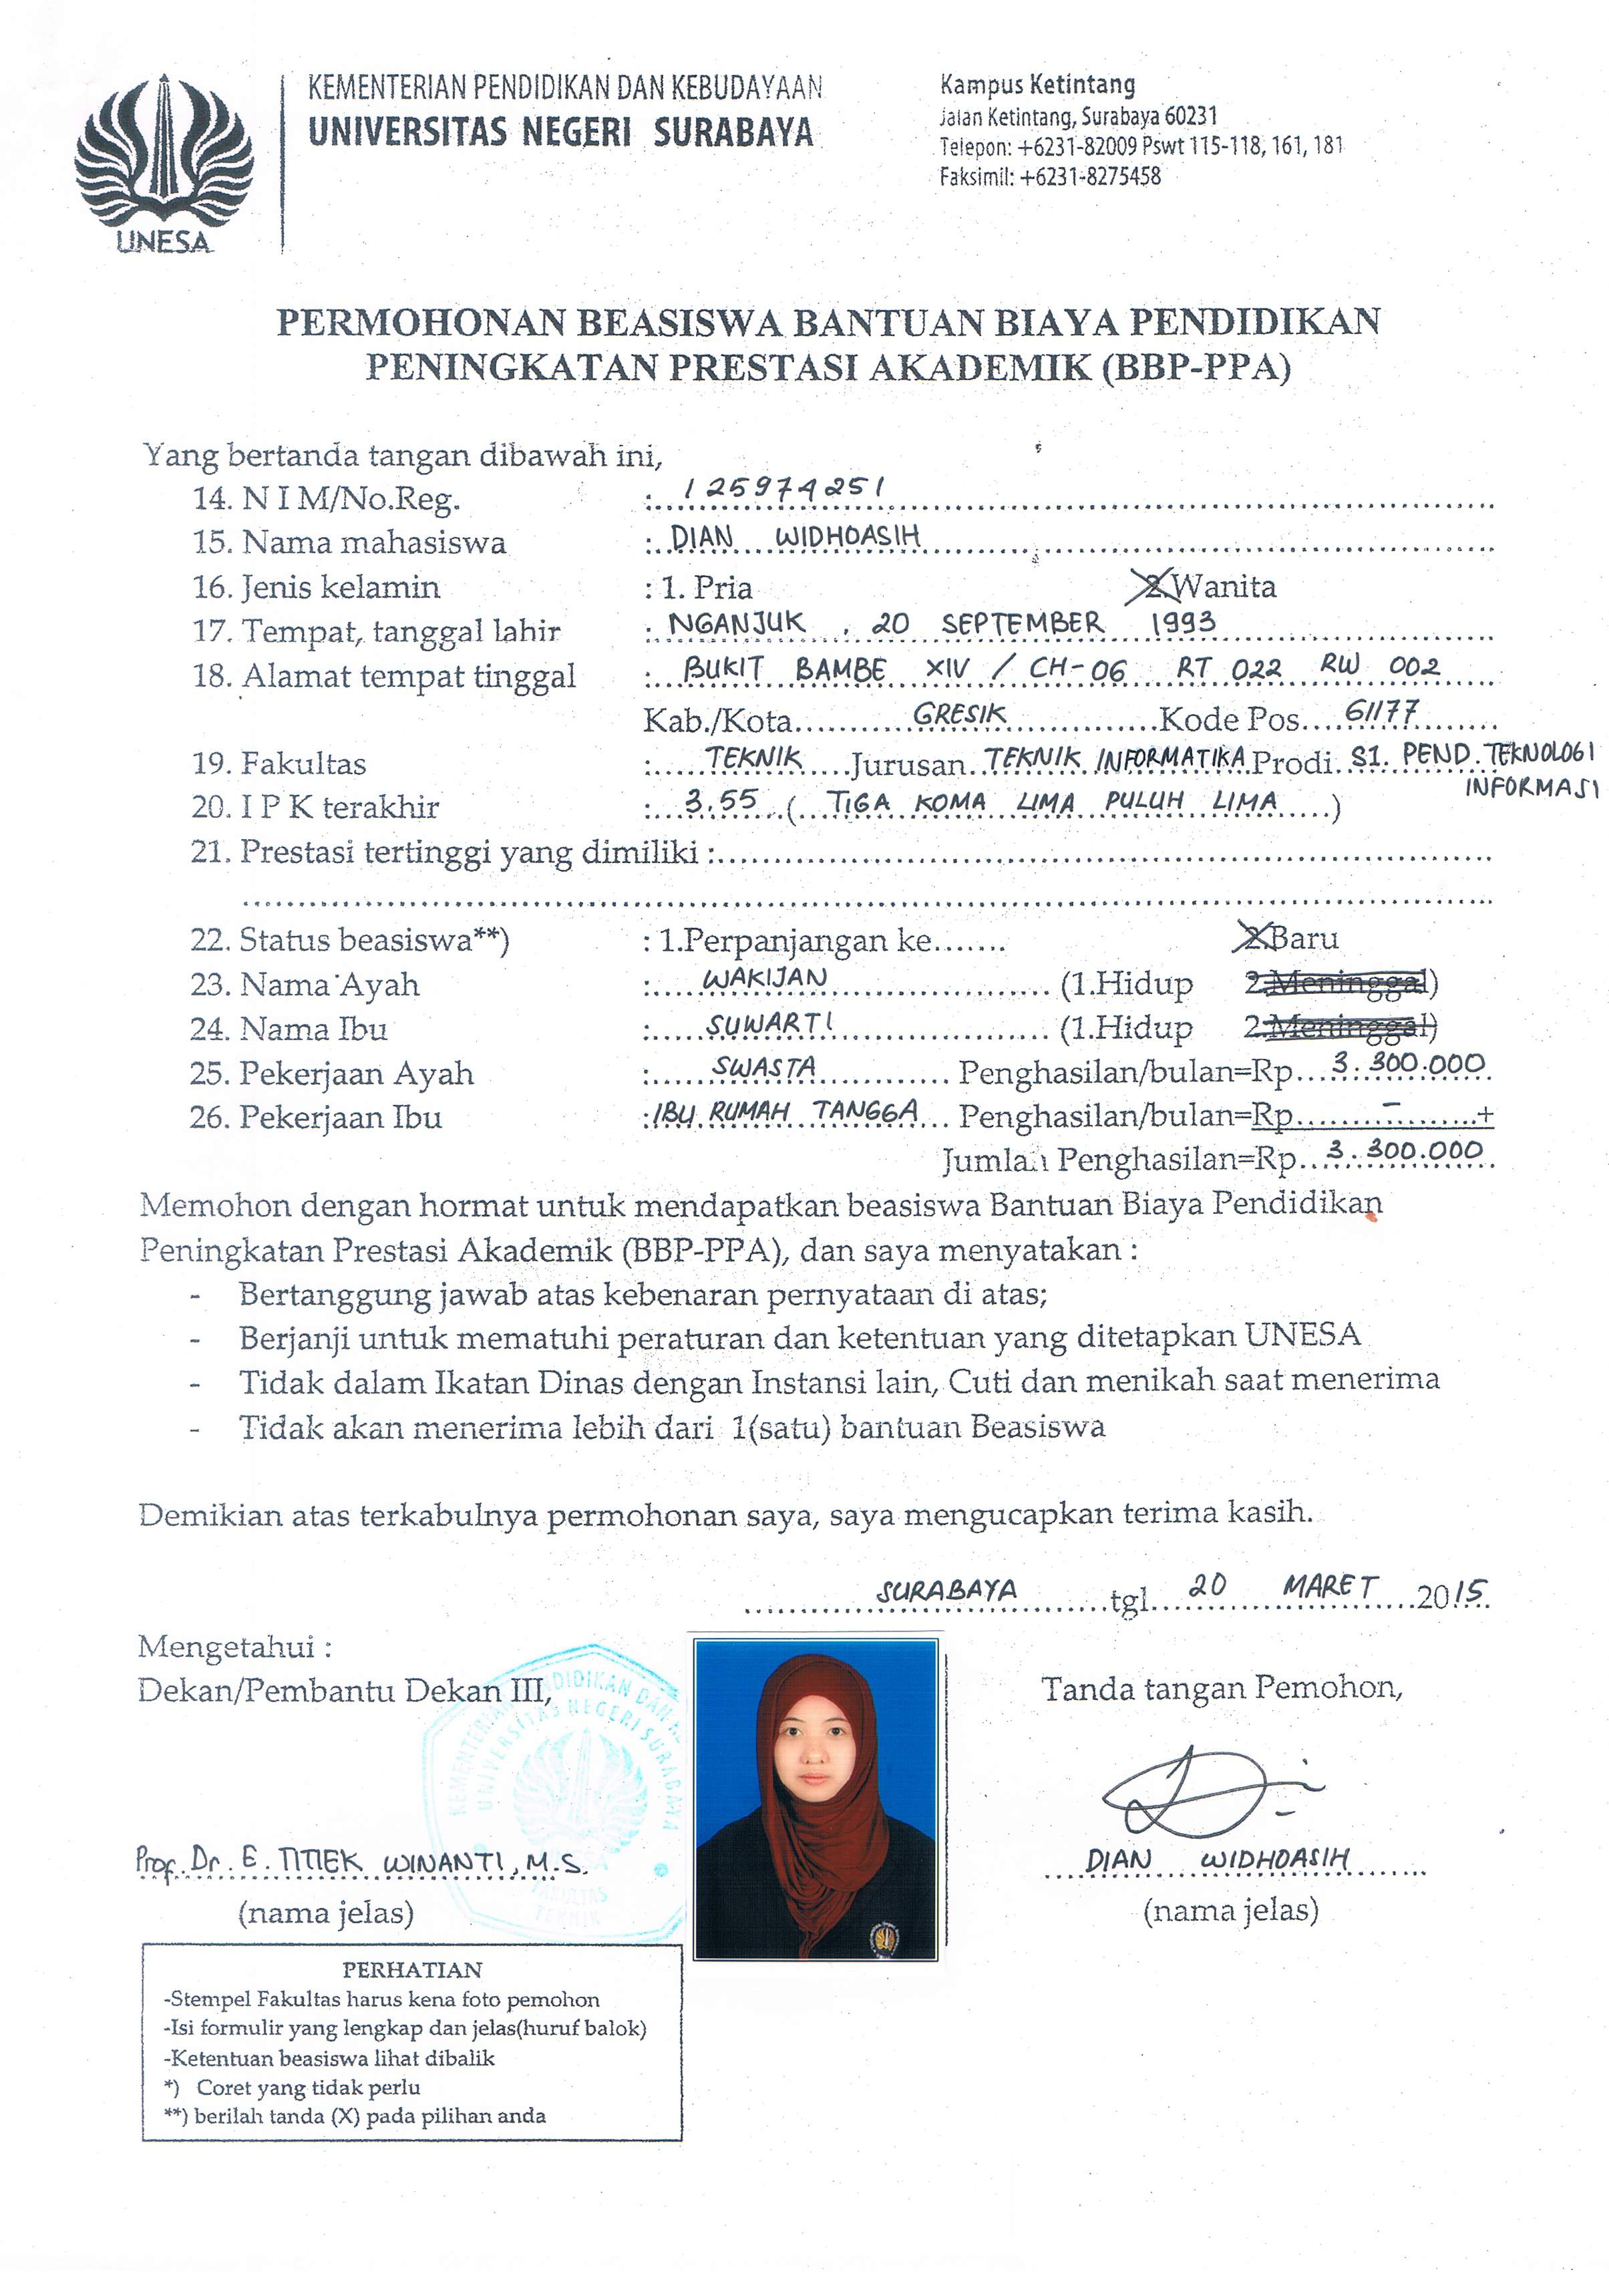 KEMENTERIAN PENDIDIKAN DAN KEBUDAYAAN
UNIVERSITAS NEGERI SURABAYA
UNESA
Kampus Ketintang
Jalan Ketintang, Surabaya 60231
Telepon: +6231-82009 Pswt 115-118, 161, 181
Faksimil: +6231-8275458
PERMOHONAN BEASISWA BANTUAN BIAYA PENDIDIKAN
PENINGKATAN PRESTASI AKADEMIK (BBP-PPA)
Yang bertanda tangan dibawah ini,
14. N I M/No.Reg. : 125974251
15. Nama mahasiswa : DIAN WIDHOASIH
16. Jenis kelamin : 1. Pria 2. Wanita
17. Tempat, tanggal lahir : NGANJUK , 20 SEPTEMBER 1993
18. Alamat tempat tinggal : BUKIT BAMBE XIV / CH-06 RT 022 RW 002
Kab./Kota GRESIK Kode Pos 61177
19. Fakultas : TEKNIK Jurusan TEKNIK INFORMATIKA Prodi S1. PEND. TEKNOLOGI
INFORMASI
20. I P K terakhir : 3.55 ( TIGA KOMA LIMA PULUH LIMA )
21. Prestasi tertinggi yang dimiliki :
22. Status beasiswa**) : 1.Perpanjangan ke....... 2.Baru
23. Nama Ayah : WAKIJAN (1.Hidup 2.Meninggal)
24. Nama Ibu : SUWARTI (1.Hidup 2.Meninggal)
25. Pekerjaan Ayah : SWASTA Penghasilan/bulan=Rp 3.300.000
26. Pekerjaan Ibu : IBU RUMAH TANGGA Penghasilan/bulan=Rp - +
Jumlah Penghasilan=Rp 3.300.000
Memohon dengan hormat untuk mendapatkan beasiswa Bantuan Biaya Pendidikan
Peningkatan Prestasi Akademik (BBP-PPA), dan saya menyatakan :
- Bertanggung jawab atas kebenaran pernyataan di atas;
- Berjanji untuk mematuhi peraturan dan ketentuan yang ditetapkan UNESA
- Tidak dalam Ikatan Dinas dengan Instansi lain, Cuti dan menikah saat menerima
- Tidak akan menerima lebih dari 1(satu) bantuan Beasiswa
Demikian atas terkabulnya permohonan saya, saya mengucapkan terima kasih.
SURABAYA tgl 20 MARET 2015
Mengetahui :
Dekan/Pembantu Dekan III,
Tanda tangan Pemohon,
UNIVERSITAS NEGERI SURABAYA
FAKULTAS
TEKNIK
Prof. Dr. E. TITIEK WINANTI, M.S.
(nama jelas)
DIAN WIDHOASIH
(nama jelas)
PERHATIAN
-Stempel Fakultas harus kena foto pemohon
-Isi formulir yang lengkap dan jelas(huruf balok)
-Ketentuan beasiswa lihat dibalik
*) Coret yang tidak perlu
**) berilah tanda (X) pada pilihan anda